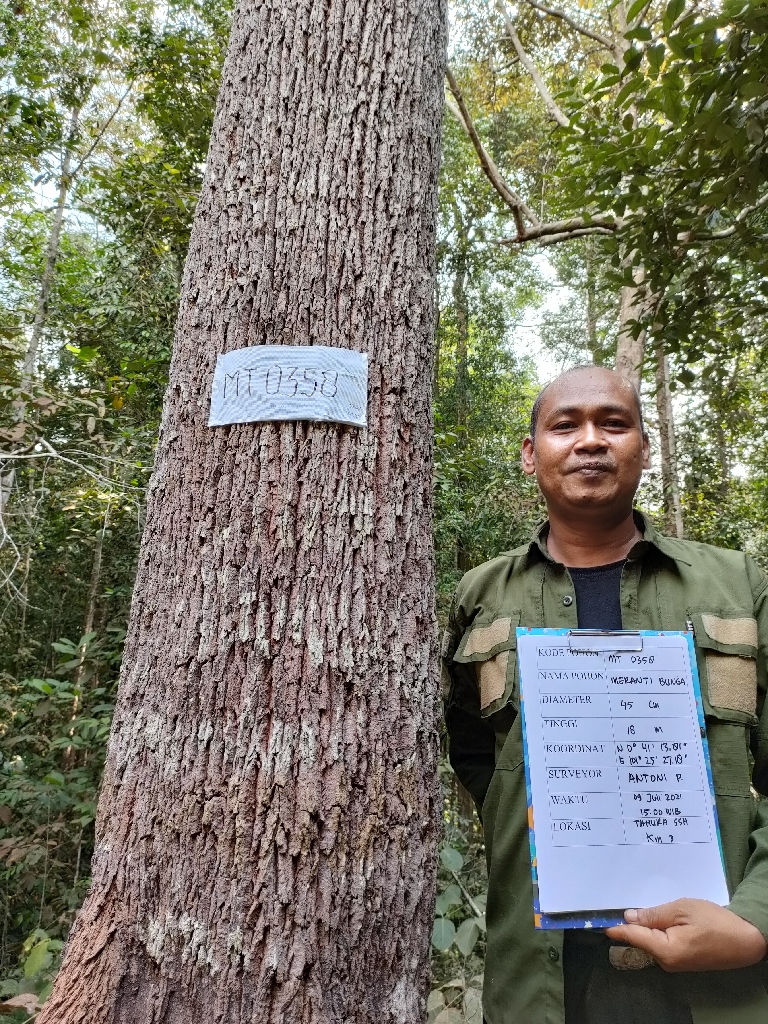 MT 0358
KODE POHON MT 0358
NAMA POHON MERANTI BUNGA
DIAMETER 45 Cm
TINGGI 18 m
KOORDINAT N 0° 41' 13.01"
E 101° 25' 27.18"
SURVEYOR ANTONI P.
WAKTU 09 Juli 2021
15.00 WIB
LOKASI TAHURA SSH
Km 3